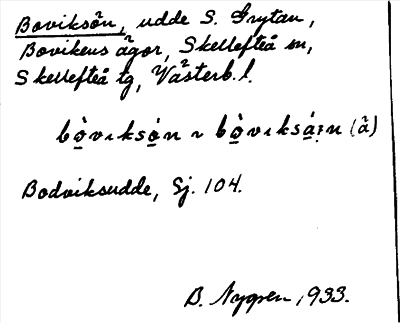 Boviksön, udde S. Grytan,
Bovikens ägor, Skellefteå sn,
Skellefteå tg, Västerb. l.
bò̱vıksə̱n ~ bò̱vıksá̱ın (å)
Bodviksudde, Sj. 104.
B. Nygren, 1933.